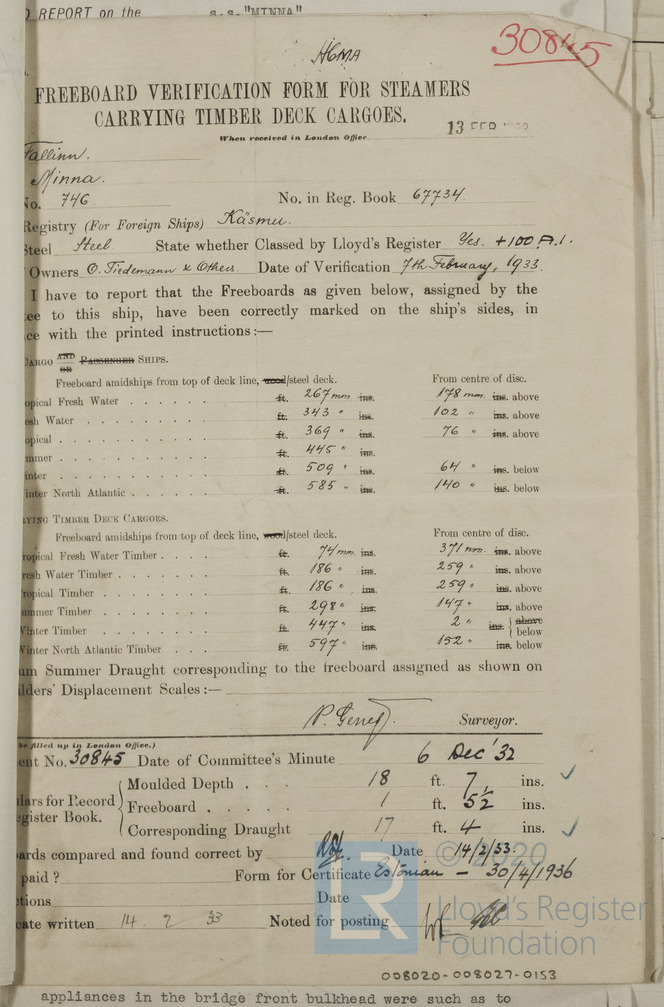 REPORT on the s.s. "MINNA"
30845
FREEBOARD VERIFICATION FORM FOR STEAMERS
CARRYING TIMBER DECK CARGOES.
When received in London Office
13 FEB
Tallinn.
Minna.
No. 746 No. in Reg. Book 67734.
Registry (For Foreign Ships) Käsmu.
Steel Steel State whether Classed by Lloyd's Register Yes. +100 A.1.
Owners O. Tiedemann & Others. Date of Verification 7th February, 1933.
I have to report that the Freeboards as given below, assigned by the
ee to this ship, have been correctly marked on the ship's sides, in
ce with the printed instructions:—
CARGO AND OR PASSENGER SHIPS.
Freeboard amidships from top of deck line, wood/steel deck. From centre of disc.
opical Fresh Water ft. 267 mm ins. 178 mm. ins. above
esh Water ft. 343 " ins. 102 " ins. above
opical ft. 369 " ins. 76 " ins. above
mmer ft. 445 " ins.
inter ft. 509 " ins. 64 " ins. below
inter North Atlantic ft. 585 " ins. 140 " ins. below
RYING TIMBER DECK CARGOES.
Freeboard amidships from top of deck line, wood/steel deck. From centre of disc.
ropical Fresh Water Timber ft. 74 mm. ins. 371 mm. ins. above
resh Water Timber ft. 186 " ins. 259 " ins. above
ropical Timber ft. 186 " ins. 259 " ins. above
ummer Timber ft. 298 " ins. 147 " ins. above
Winter Timber ft. 447 " ins. 2 " ins. above below
Winter North Atlantic Timber ft. 597 " ins. 152 " ins. below
um Summer Draught corresponding to the freeboard assigned as shown on
ilders' Displacement Scales:—
Surveyor.
be filled up in London Office.)
ent No. 30845 Date of Committee's Minute 6 Dec '32
Moulded Depth 18 ft. 7 ins.
lars for Record
egister Book.
Freeboard 1 ft. 5½ ins.
Corresponding Draught 17 ft. 4 ins.
ards compared and found correct by Date 14/2/33.
paid? Form for Certificate Estonian – 30/4/1936
ctions Date
cate written 14. 2 33 Noted for posting
© 2020
LR
Lloyd's Register
Foundation
008020-008027-0153
appliances in the bridge front bulkhead were such as to